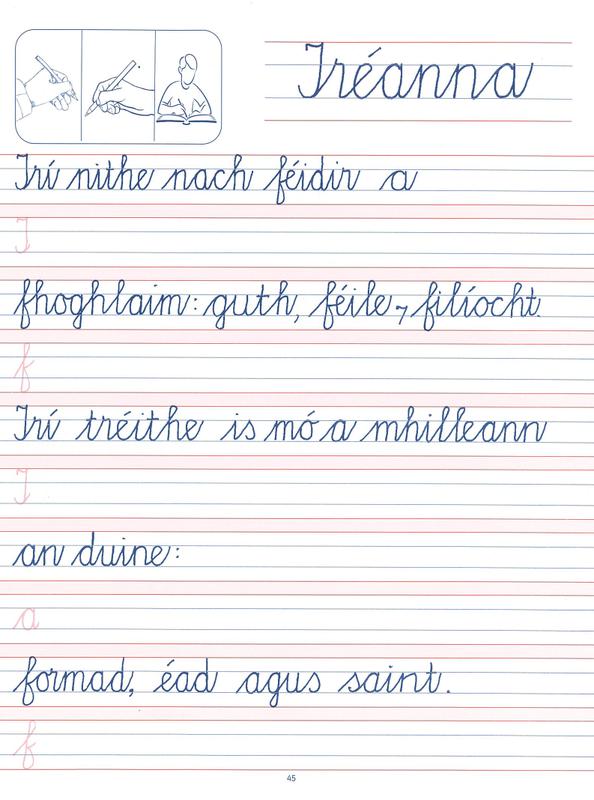 Tréanna
Trí nithe nach féidir a
T
fhoghlaim: guth, féile ⁊ filíocht.
f
Trí tréithe is mó a mhilleann
T
an duine:
a
formad, éad agus saint.
f
45